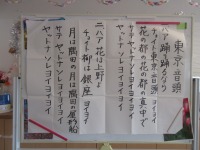 東京音頭
ハア 踊り踊るなら
チョイト 東京音頭 ヨイヨイ
花の都の 花の都の真中で
ヤットナ ソレ ヨイヨイヨイ
ヤットナ ソレ ヨイヨイヨイ
ハア 花は上野よ
チョイト 柳は銀座 ヨイヨイ
月は隅田の 月は隅田の屋形船
ヤットナ ソレ ヨイヨイヨイ
ヤットナ ソレ ヨイヨイヨイ